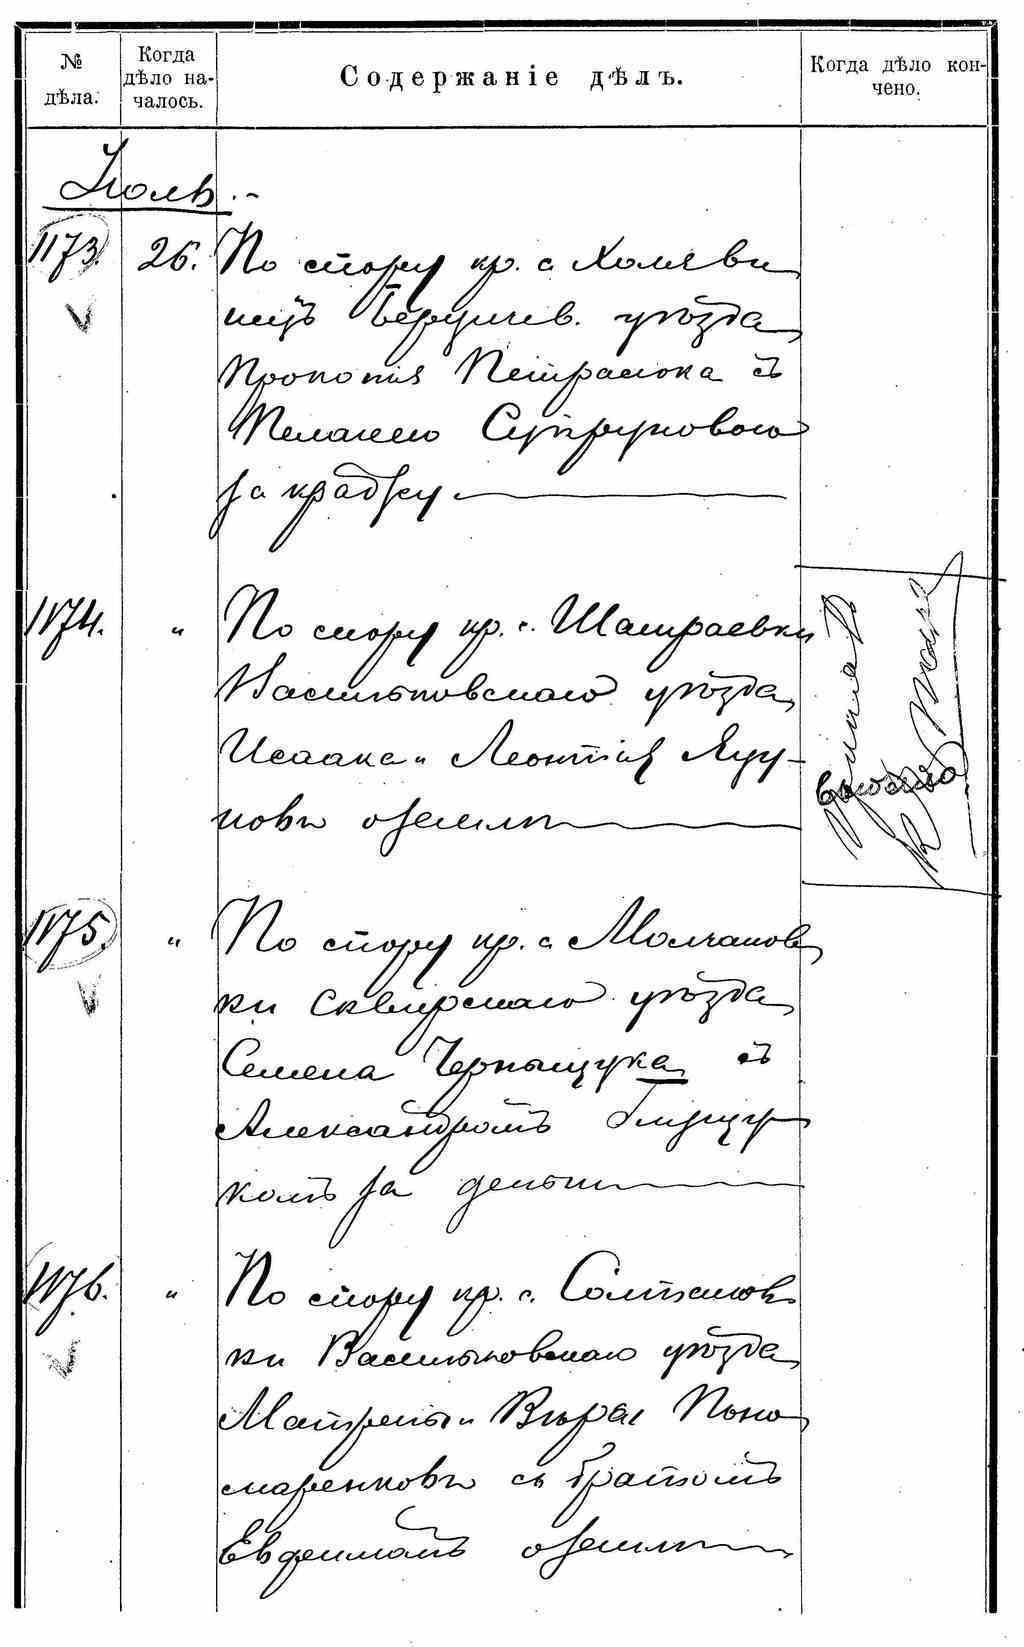 № дѣла.
Когда дѣло началось.
Содержаніе дѣлъ.
Когда дѣло кончено.
Іюль.
1173. 26. По спору кр. с. Халяви
нецъ Бердичев. уѣзда
Прокопія Петрасюка съ
Пелагеею Супруновою
за кражу
1174. " По спору кр. с. Шамраевки
Васильковскаго уѣзда
Исаака и Леонтія Яцу-
новъ о землѣ
1175. " По спору кр. с. Молчанов
ки Сквирскаго уѣзда
Семена Чернышука съ
Александромъ
комъ за деньги
1176. " По спору кр. с. Солтанов
ки Васильковскаго уѣзда
Матрены и Вѣры Поно
маренковъ съ братомъ
Евфимомъ о землѣ